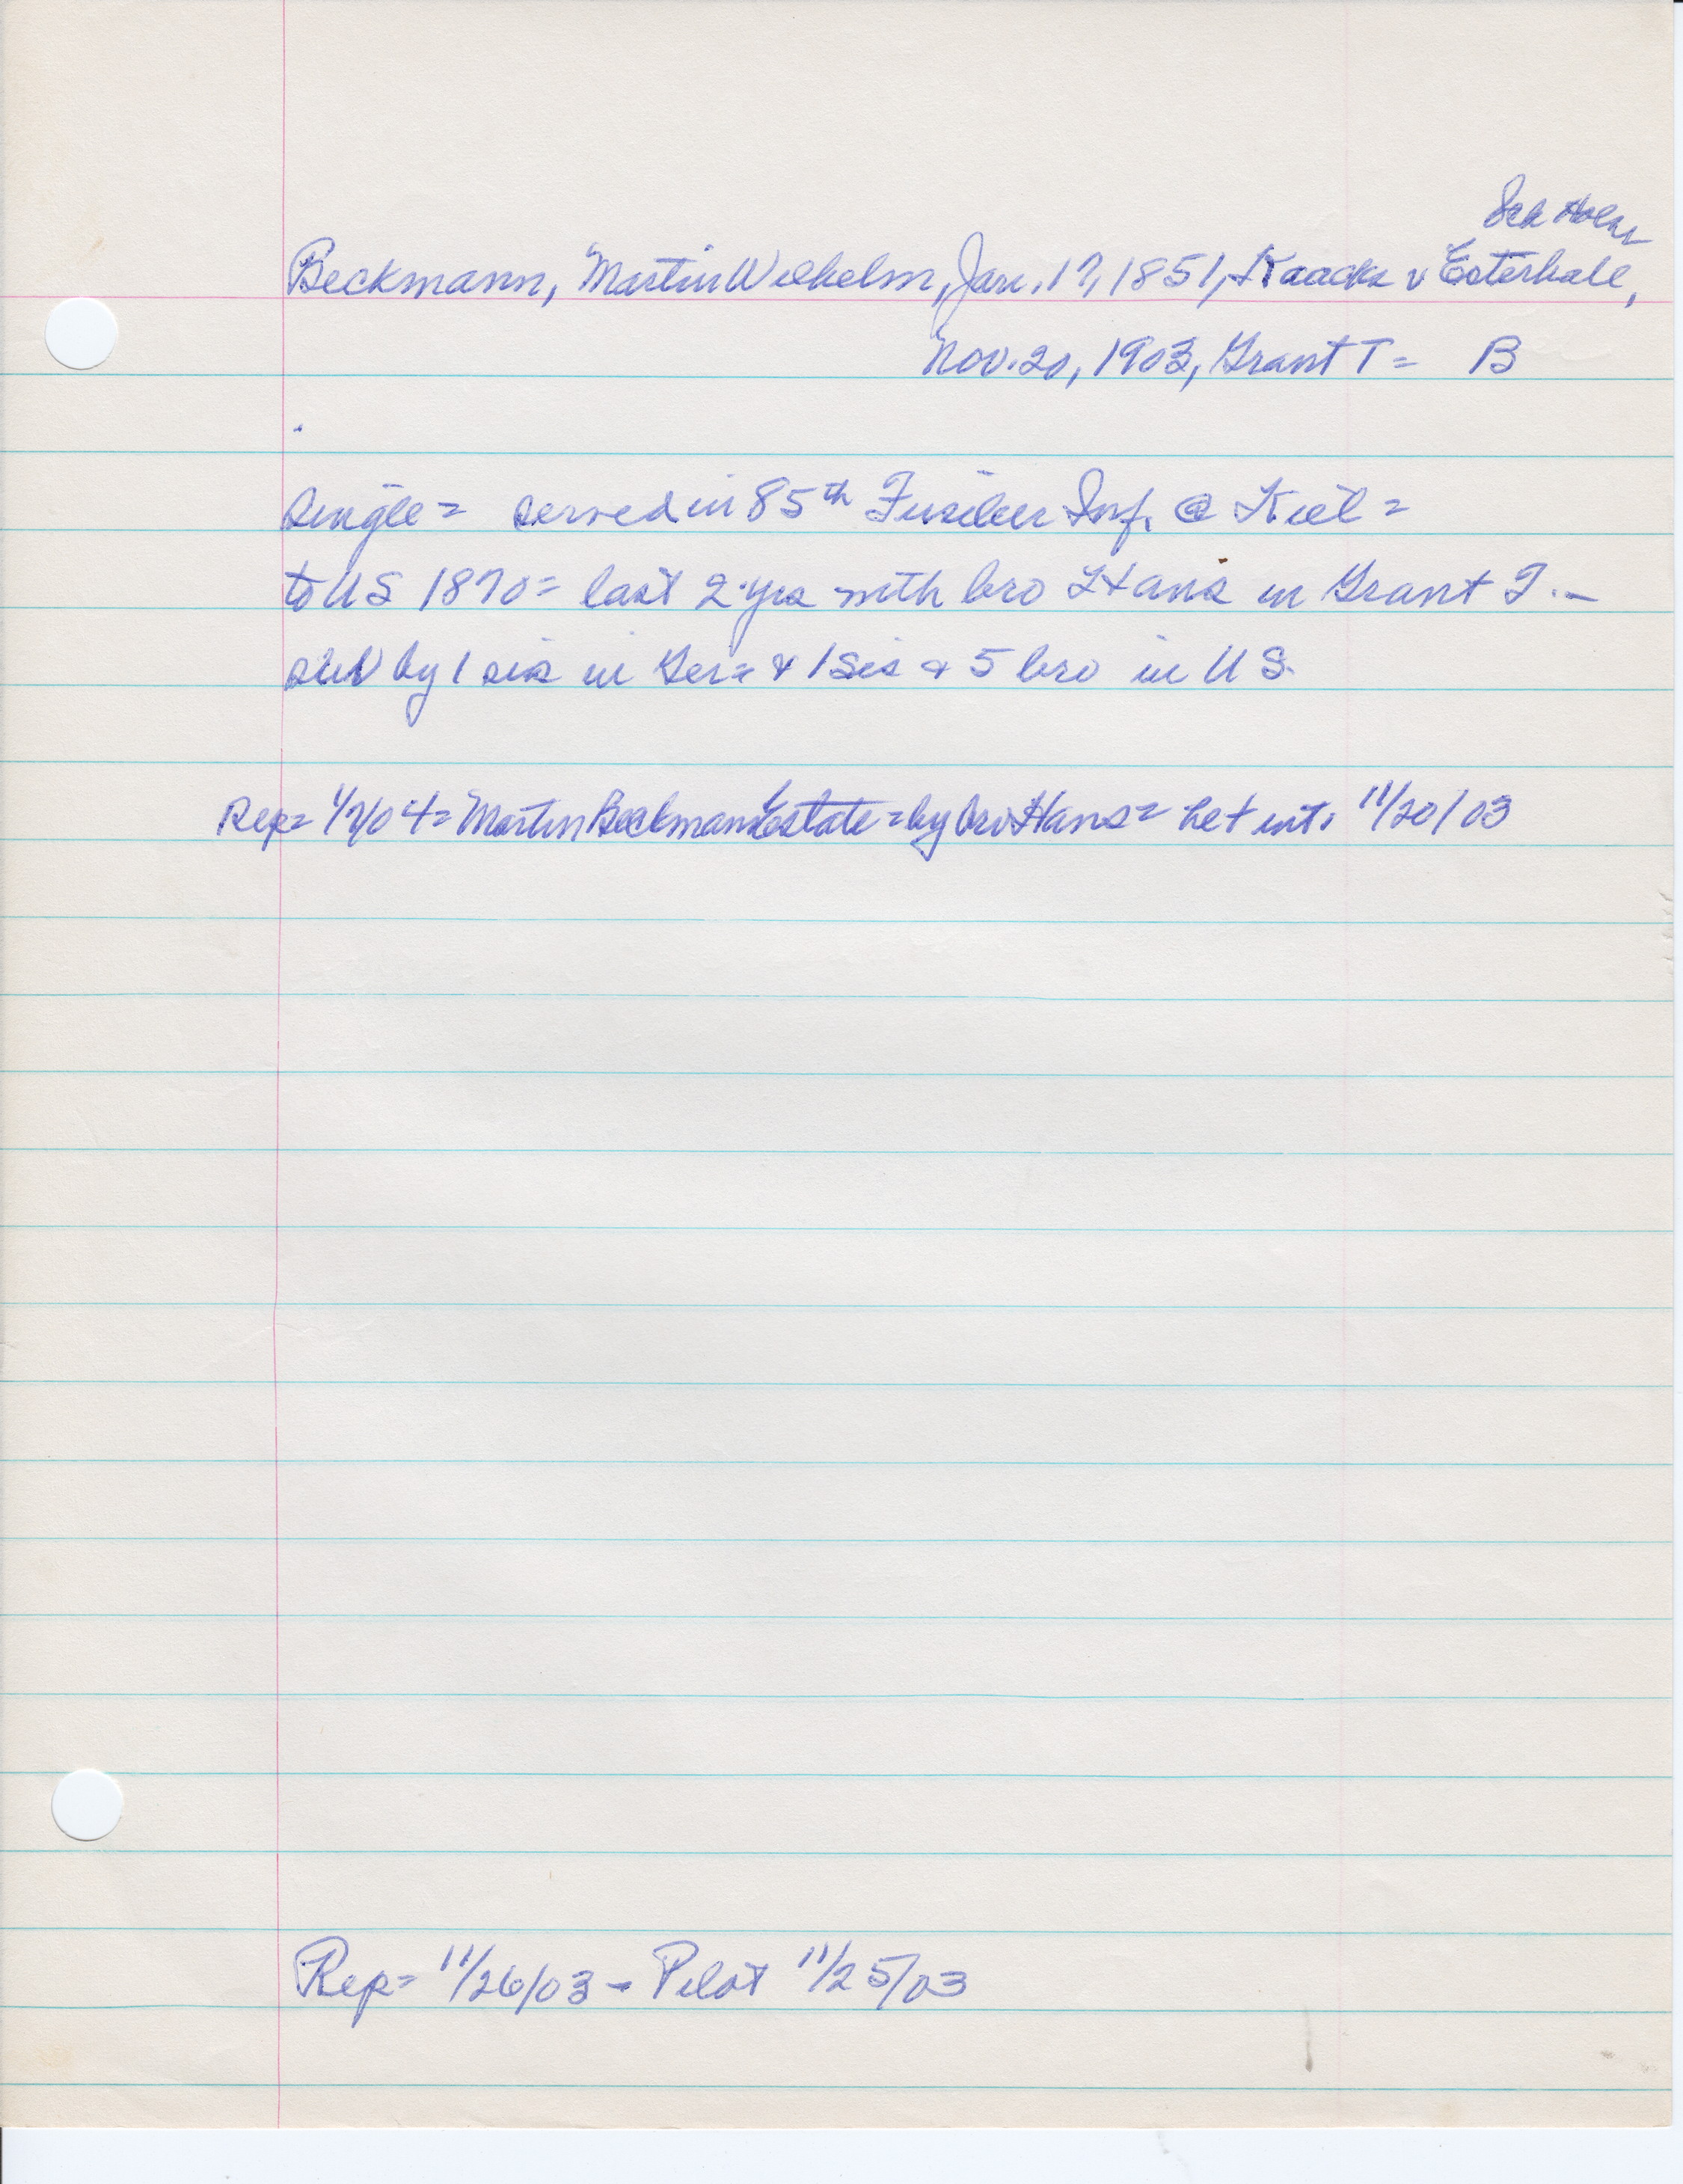 Sch Holst
Beckmann, Martin Wilhelm, Jan. 17, 1851, Kaacks v Esterhale,
Nov. 20, 1903, Grant T = B
single = served in 85th Fusileer Inf. @ Kiel =
to US 1870 = last 2 yrs with bro Hans in Grant T. -
sur by 1 sis in Ger = & 1 sis & 5 bro in US.
Rep = 1/7/04 = Martin Beckmann Estate = by bro Hans = Let int. 11/20/03
Rep = 11/26/03 - Pilot 11/25/03